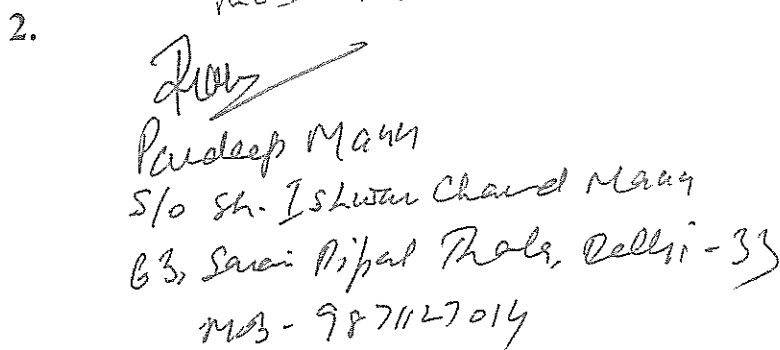 2.
Pardeep Mann
S/o Sh. Ishwar Chand Mann
63, Sarai Pipal Thala, Delhi-33
MOB- 9871127014